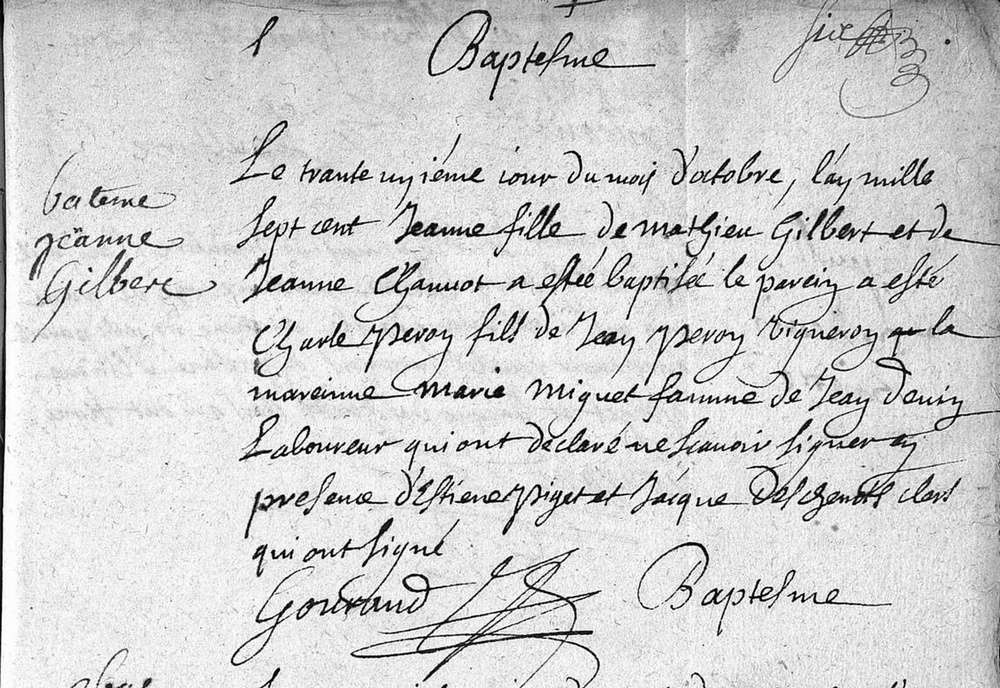 Baptesme
Le trante uniéme iour du mois d'octobre, l'an mille
bateme
sept cent Jeanne fille de mathieu Gilbert et de
jeanne
Jeanne Chauvot a esteé baptiseé le parein a esté
Gilbere
Charle peron fils de Jean peron vigneron la
mareinne marie miguet famme de Jean denin
Laboureur qui ont declaré ne scavoir signer en
presence d'Estiene piget et Jacque deschents clers
qui ont signé
Gouraud
Baptesme